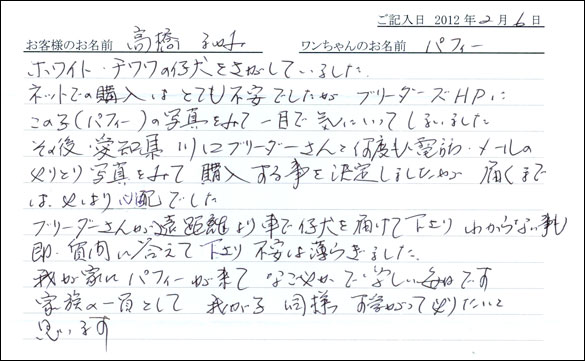 ご記入日 2012年2月6日
お客様のお名前 高橋 ワンちゃんのお名前 パフィー
ホワイト・チワワの仔犬をさがしていました。
ネットでの購入はとても不安でしたが ブリーダーズHPに
この子(パフィー)の写真をみて一目で気にいってしまいました
その後、愛知県 川口ブリーダーさんと何度も電話・メールの
やりとり写真をみて購入する事を決定しましたが 届くまで
は、やはり心配でした
ブリーダーさんが遠距離より車で仔犬を届けて下さり わからない事も
即、質問に答えて下さり 不安は薄らぎました。
我が家に パフィーが来て なごやかで楽しい毎日です
家族の一員として 我が子同様 可愛がってやりたいと
思います